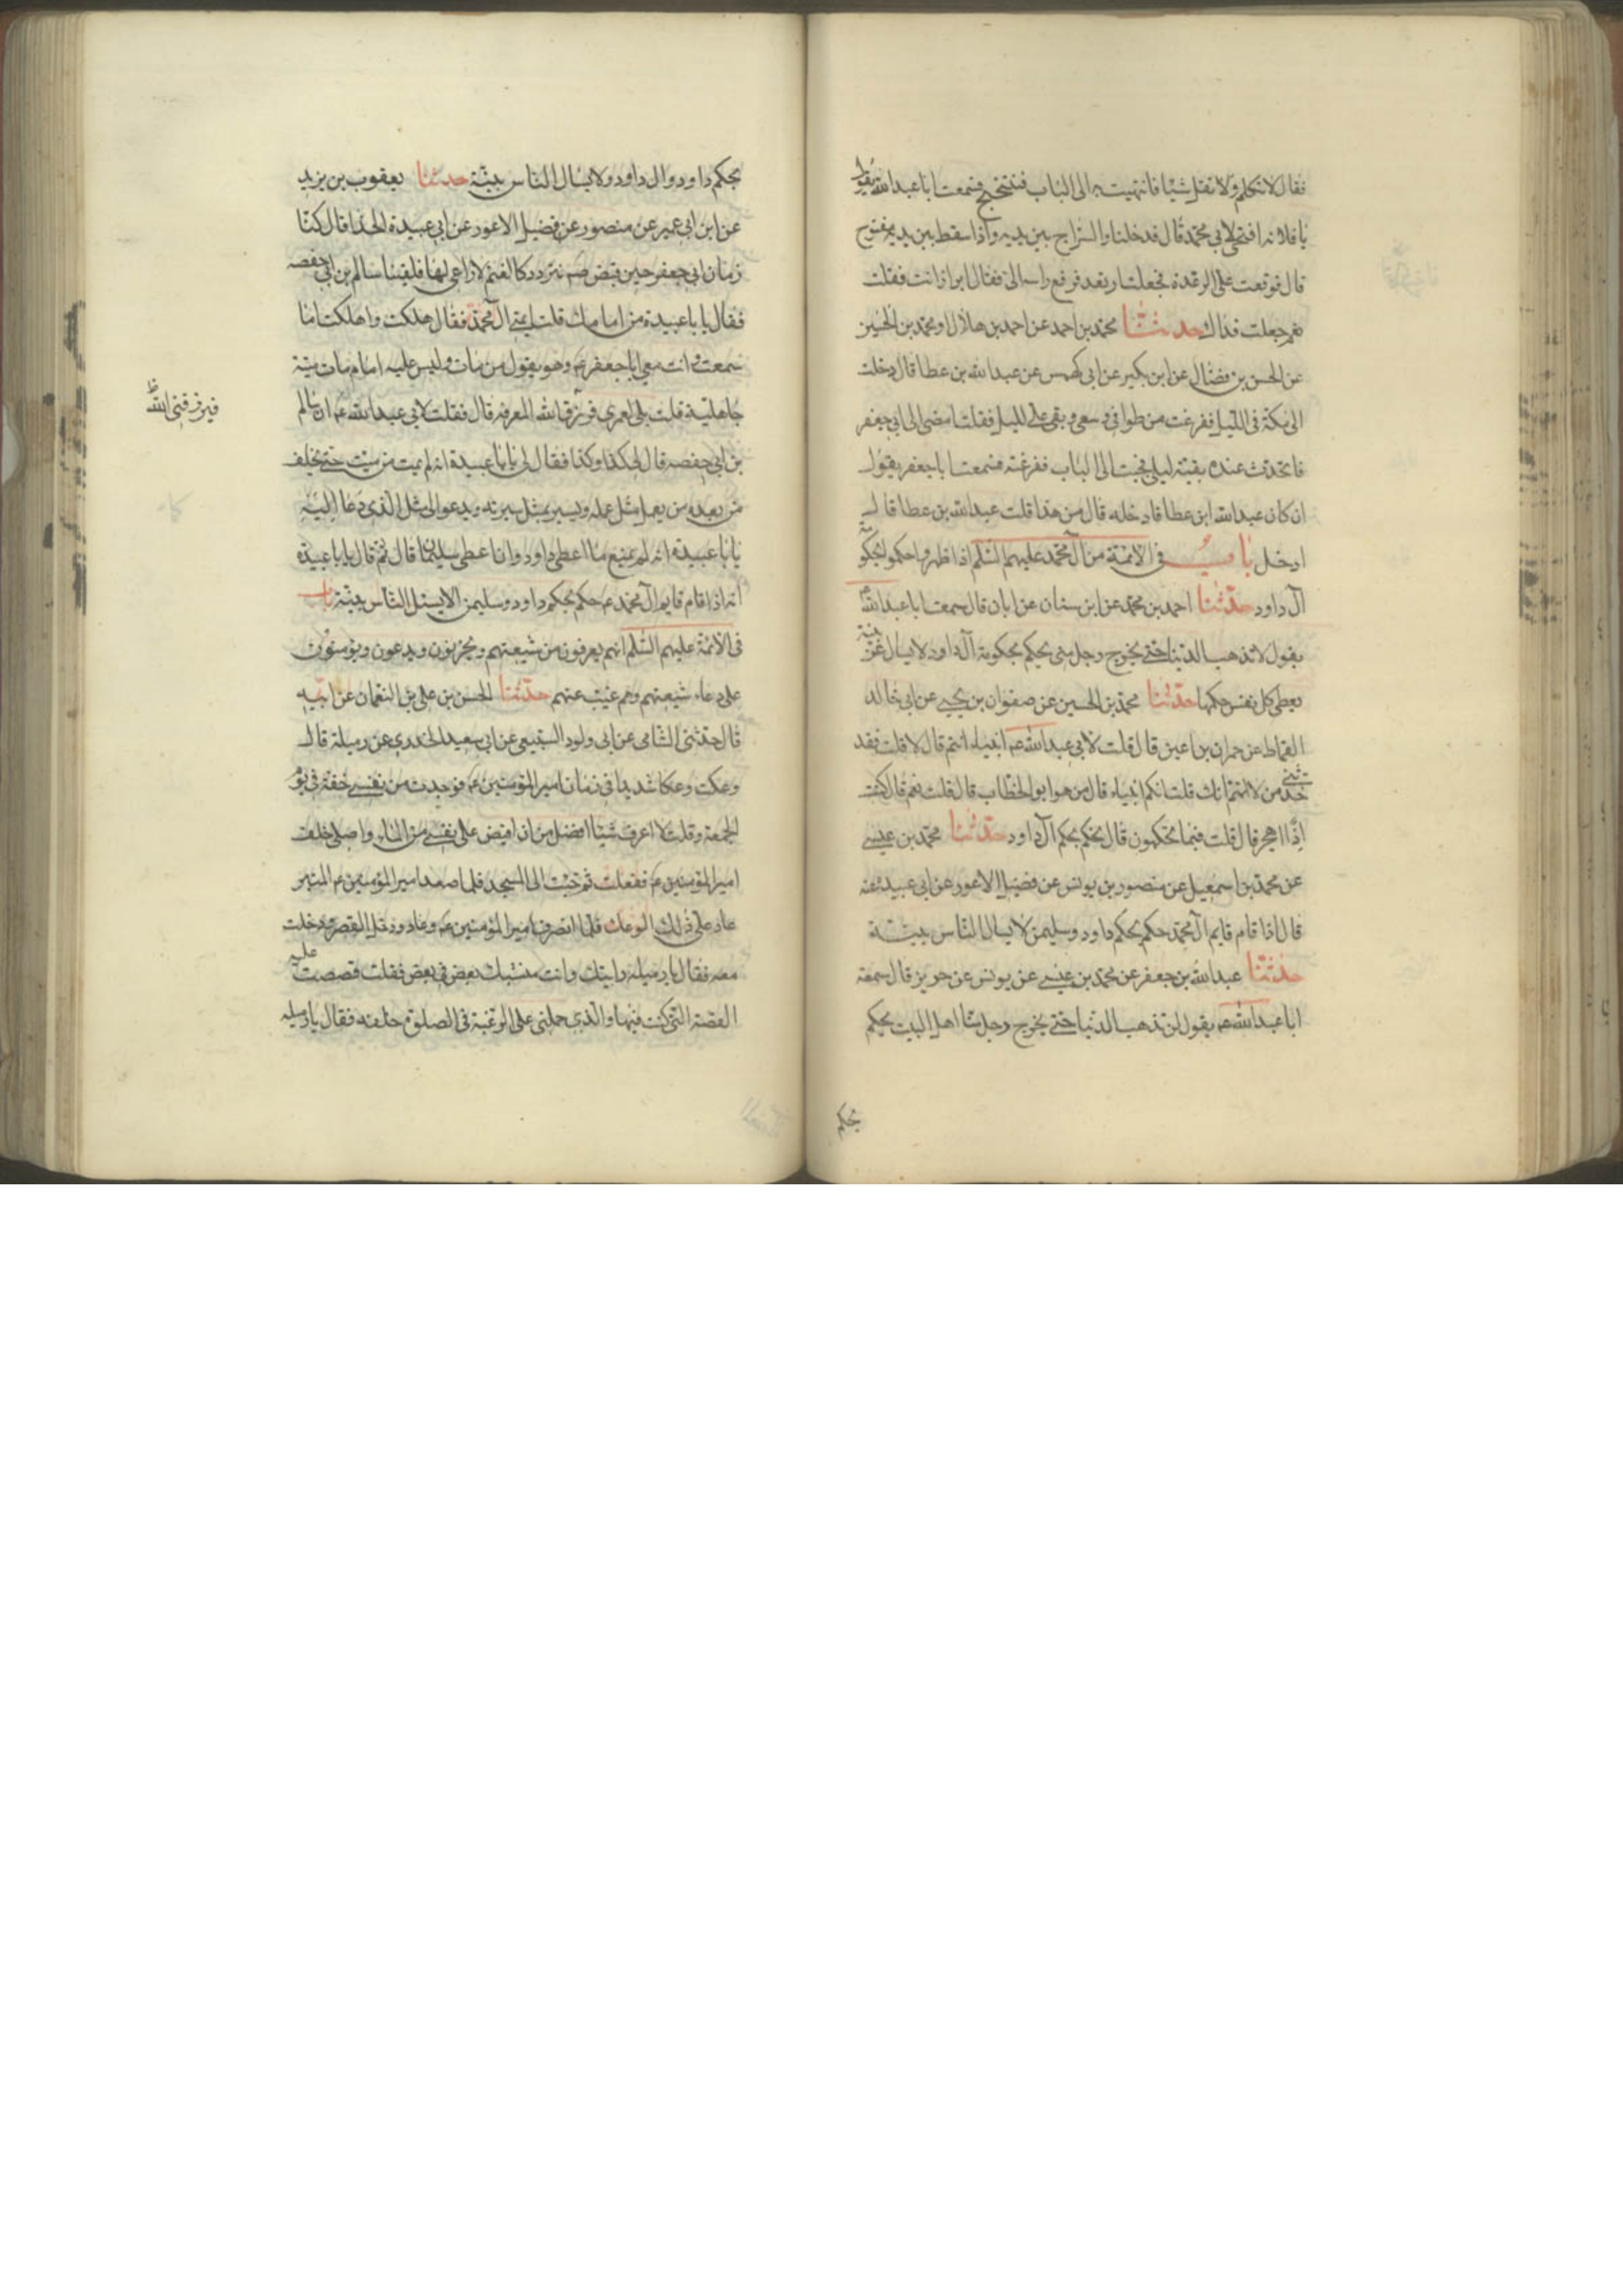 فقال لا تتكلم ولا تقل شيئا فانتهيت به الى الباب فتنحنح فسمعت ابا عبد الله يقول
يا فلانه افتحى لابى محمد قال فدخلنا والسراج بين يديه واذا سفط بين يديه مفتوح
قال فوقعت على الرعدة فجعلت ارتعد فرفع راسه الى فقال ابزاز انت فقلت
نعم جعلت فداك حدثنا محمد بن احمد عن احمد بن هلال او محمد بن الحسين
عن الحسن بن فضال عن ابن بكير عن ابى كهمس عن عبد الله بن عطا قال دخلت
الى مكة فى الليل ففرغت من طوافى وسعى وبقى على الليل فقلت امضى الى ابى جعفر
فاتحدث عنده بقية ليلى فجئت الى الباب فقرعته فسمعت ابا جعفر يقول
ان كان عبد الله ابن عطا فادخله قال من هذا قلت عبد الله بن عطا قال
ادخل باب فى الائمة من آل محمد عليهم السلم اذا ظهروا حكموا بحكومة
آل داود حدثنا احمد بن محمد عن ابن سنان عن ابان قال سمعت ابا عبد الله
يقول لا تذهب الدنيا حتى يخرج رجل منى يحكم بحكومة آل داود لا يسال عن بينة
يعطى كل نفس حكمها حدثنا محمد بن الحسين عن صفوان بن يحيى عن ابى خالد
القماط عن حمران بن اعين قال قلت لابى عبد الله عم انبياء انتم قال لا قلت فقد
حدثنى من لا اتهم انك قلت انكم انبياء قال من هو ابو الخطاب قال قلت نعم قال كنت
اذا اهجر قال قلت فبما تحكمون قال نحكم بحكم آل داود حدثنا محمد بن عيسى
عن محمد بن اسمعيل عن منصور بن يونس عن فضيل الاعور عن ابى عبيدة عنه
قال اذا قام قايم آل محمد حكم بحكم داود وسليمن لا يسال الناس بينة
حدثنا عبد الله بن جعفر عن محمد بن عيسى عن يونس عن حريز قال سمعت
ابا عبد الله عم يقول لن تذهب الدنيا حتى يخرج رجل منا اهل البيت يحكم
بحكم
بحكم داود وال داود ولا يسال الناس بينة حدثنا يعقوب بن يزيد
عن ابن ابى عمير عن منصور عن فضيل الاعور عن ابى عبيدة الحذا قال كنا
زمان ابى جعفر حين قبض عم نتردد كالغنم لا راعى لها فلقينا سالم بن ابى حفصه
فقال يا با عبيدة من امامك قلت ائمتى آل محمد فقال هلكت واهلكت اما
سمعت وانت معى ابا جعفر عم وهو يقول من مات وليس عليه امام مات ميتة
جاهلية قلت بلى لعمرى فرزقنا الله المعرفه قال فقلت لابى عبد الله عم ان سالم
بن ابى حفصه قال لى كذا وكذا فقال لى يا با عبيدة انه لم يمت من ميت حتى يخلف
من بعده من يعمل مثل عمله ويسير بمثل سيرته ويدعو الى مثل الذى دعا اليه
يا با عبيده انه لم يمنع ما اعطى داود وان اعطى سليمان قال ثم قال يا با عبيدة
انه اذا قام قايم آل محمد عم حكم بحكم داود وسليمن لا يسئل الناس بينة باب
فى الائمة عليهم السلم انهم يعرفون من شيعتهم ويحزنون ويدعون ويؤمنون
على دعاء شيعتهم وهم غيب عنهم حدثنا الحسن بن على بن النعمان عن ابيه
قال حدثنى الشامى عن ابى ولود السبيعى عن ابى سعيد الخدرى عن رميلة قال
وعكت وعكا شديدا فى زمان امير المؤمنين عم فوجدت من نفسى خفة فى يوم
الجمعة وقلت لا اعرف شيئا افضل من ان افيض على نفسى من الماء واصلى خلف
امير المؤمنين عم ففعلت ثم جئت الى المسجد فلما صعد امير المؤمنين عم المنبر
عاد على ذلك الوعك فلما انصرف امير المؤمنين عم وعاد ودخل القصر دخلت
معه فقال يا رميله رايتك وانت متشبك بعض فى بعض فقلت قصصت عليه
القصة التى كنت فيها والذى حملنى على الرغبة فى الصلوة خلفه فقال يا رميله
فيرزقنى الله ظ